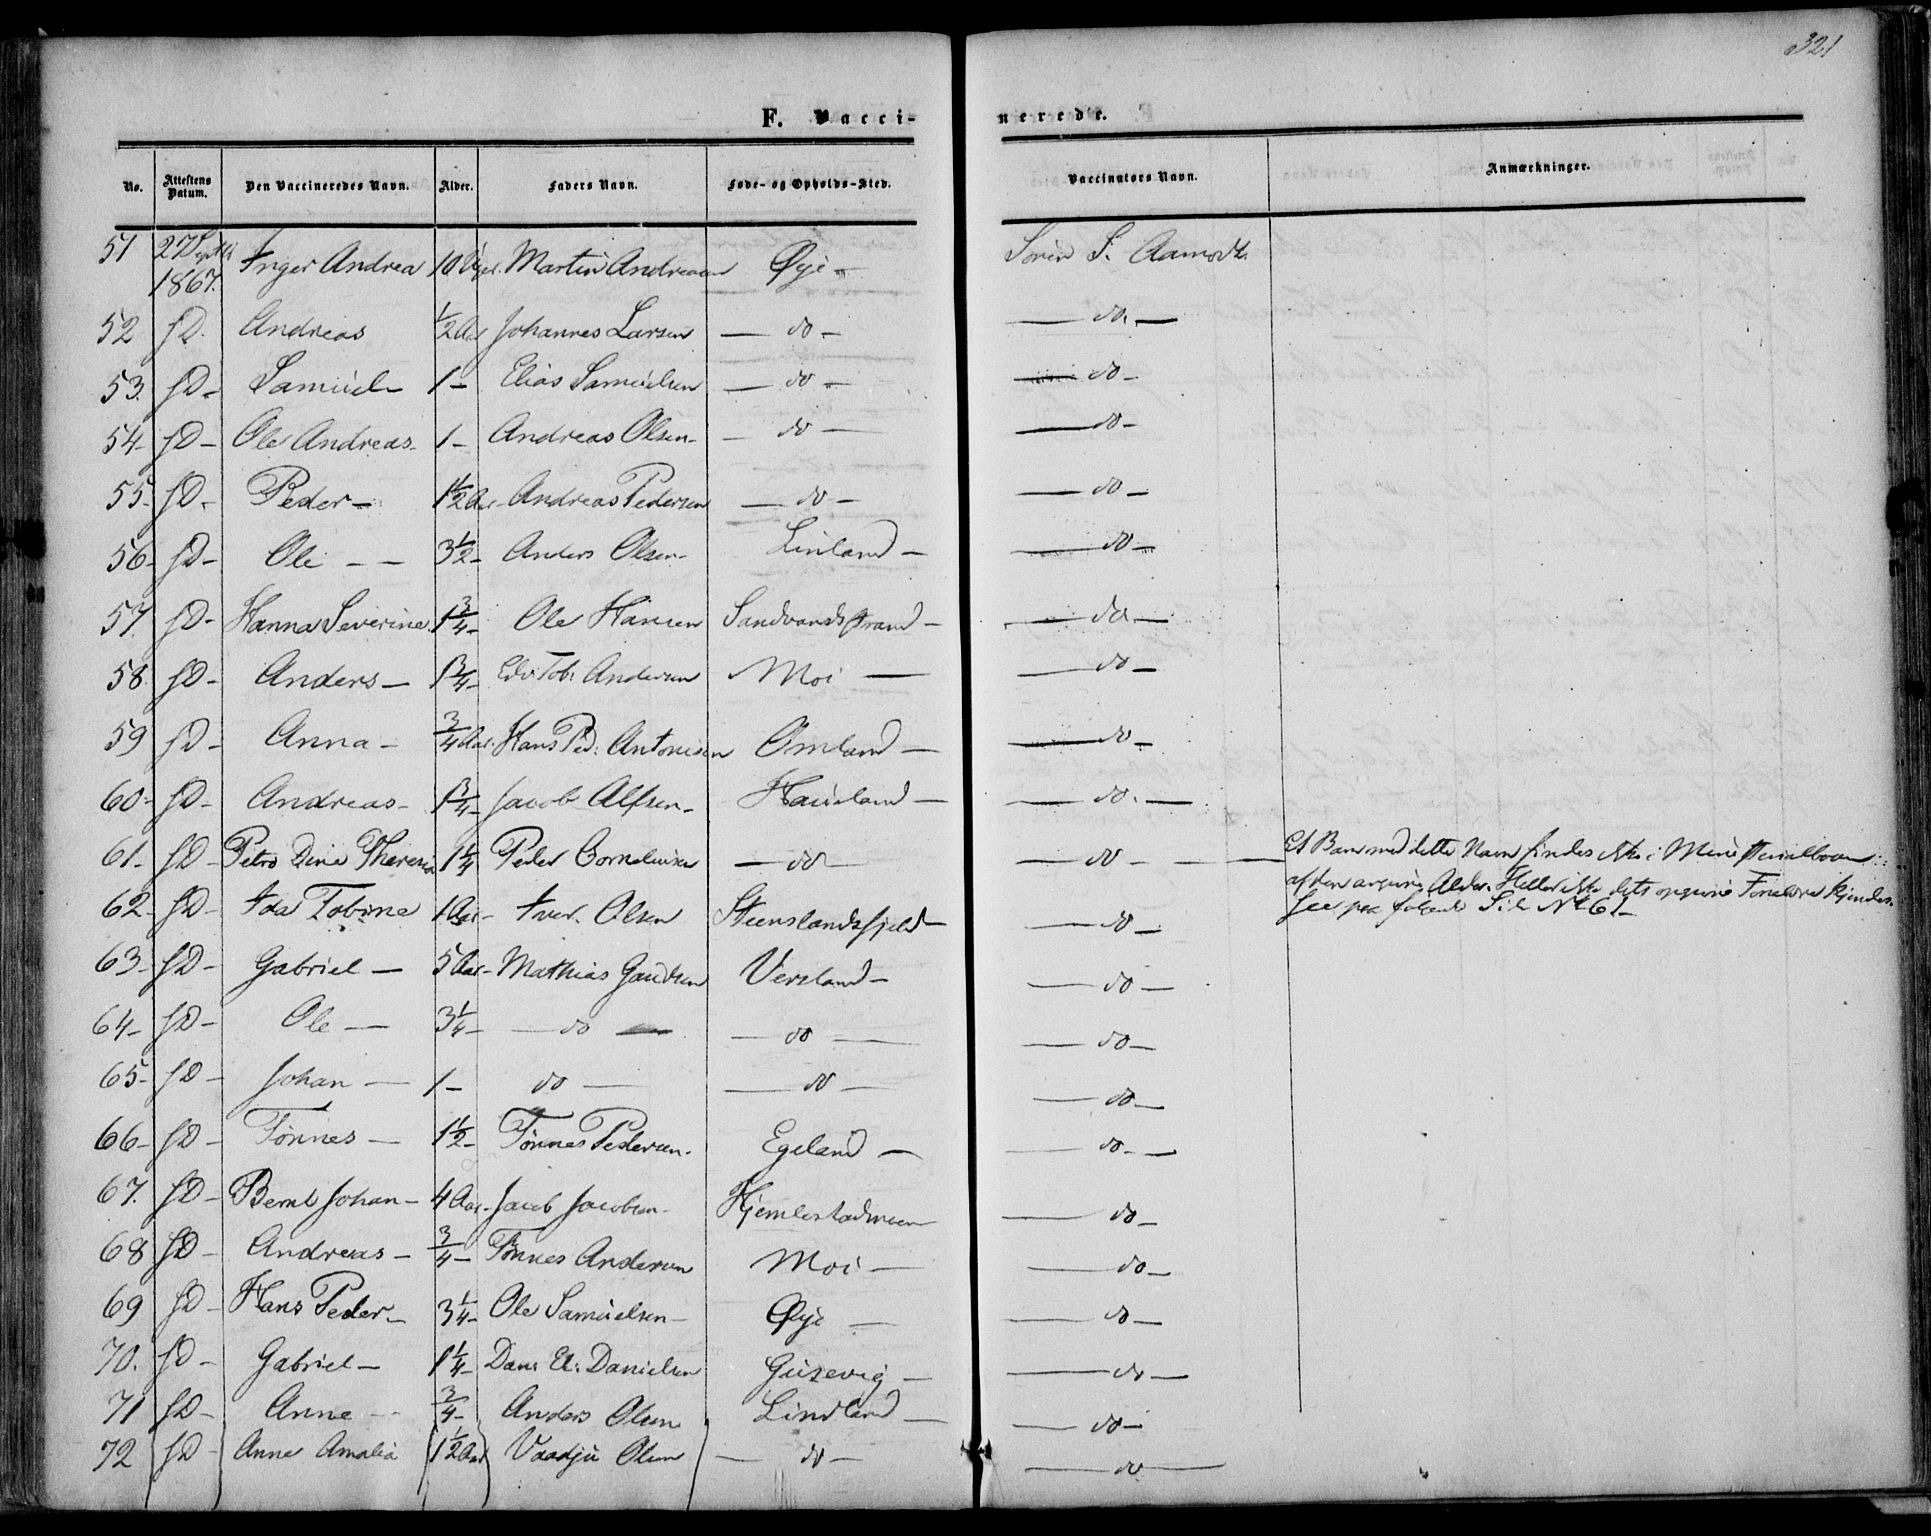 321
F. Vacci-nerede.
No. Attestens Datum. Den Vaccineredes Navn. Alder. Faders Navn. Føde- og Opholds-Sted. Vaccinatørs Navn. Anmærkninger.
51 27 Septb 1867. Inger Andrea 10 Martin Andreasen Øye- Søren S. Aamodt.
52 sD. Andreas 1/2 Aar Johannes Larsen — do — — do. —
53. sD- Samuel- 1- Elias Samuelsen — do — — do -
54- sD- Ole Andreas- 1- Andreas Olsen- - do — — do -
55- sD- Peder- 1 1/2 Aar- Andreas Pedersen — do — — do -
56- sD- Ole - - 3 1/2- Anders Olsen- Linland — — do -
57. sD- Hanna Severine 1 3/4- Ole Hansen Sandvandstrand — — do —
58 sD- Anders - 1 3/4- Edv Tob: Andersen Moi — — do -
59 sD- Anna - 3/4 Aar. Hans Ped: Antonisen Omland — — do -
60- sD- Andreas- 1 3/4- Jacob Alfsen- Haueland — — do. —
61- sD- Petra Dine Theresia 1 1/4 Peder Corneliusen — do — — do - — Et Barn med dette Navn findes ikke i Ministerialbogen
af den angivne Alder. Heller ikke dets angivne Forældre kjendes.
See paa følgende Side No 61-
62- sD- Ida Tobine 1 Aar- Iver Olsen Steenslandsfjeld — — do -
63- sD- Gabriel - 5 Aar- Mathias Gaudsen Versland - — do -
64- sD- Ole — 3 1/4- — do — — do — — do -
65- sD- Johan — 1- do — — do — — do -
66- sD- Tønnes — 1 1/2- Tønnes Pedersen. Egeland — — do - —
67. sD- Bernt Johan - 4 Aar- Jacob Jacobsen- Hjemlestadmoen — do -
68 sD- Andreas - 3/4- Tønnes Andersen Moi — — do -
69 sD- Hans Peder- 3 1/4- Ole Samuelsen- Øye — — do -
70. sD- Gabriel - 1 1/4- Dan: El: Danielsen Gusevig — — do -
71 sD- Anne - 3/4- Anders Olsen Lindland — — do -
72 sD- Anne Amalia 1 1/2 Aar Olsen — do — — do —